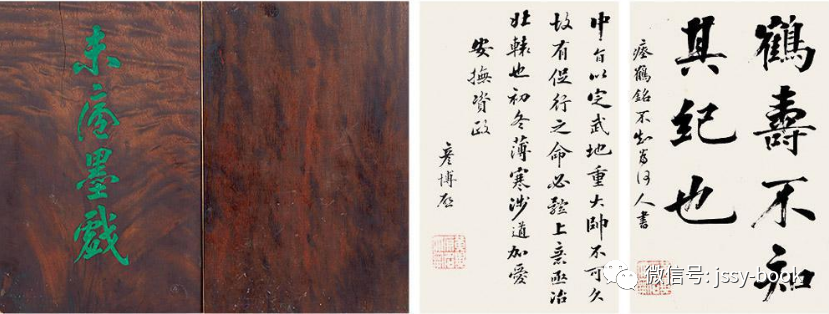 未庵墨戲
中旨以定武地重大帥不可久
故有促行之命必體上意亟治
北轅也初冬薄寒涉道加愛
安撫資政
彥博啟
鶴壽不知
其紀也
瘞鶴銘不知為何人書
微信号: jssy-book